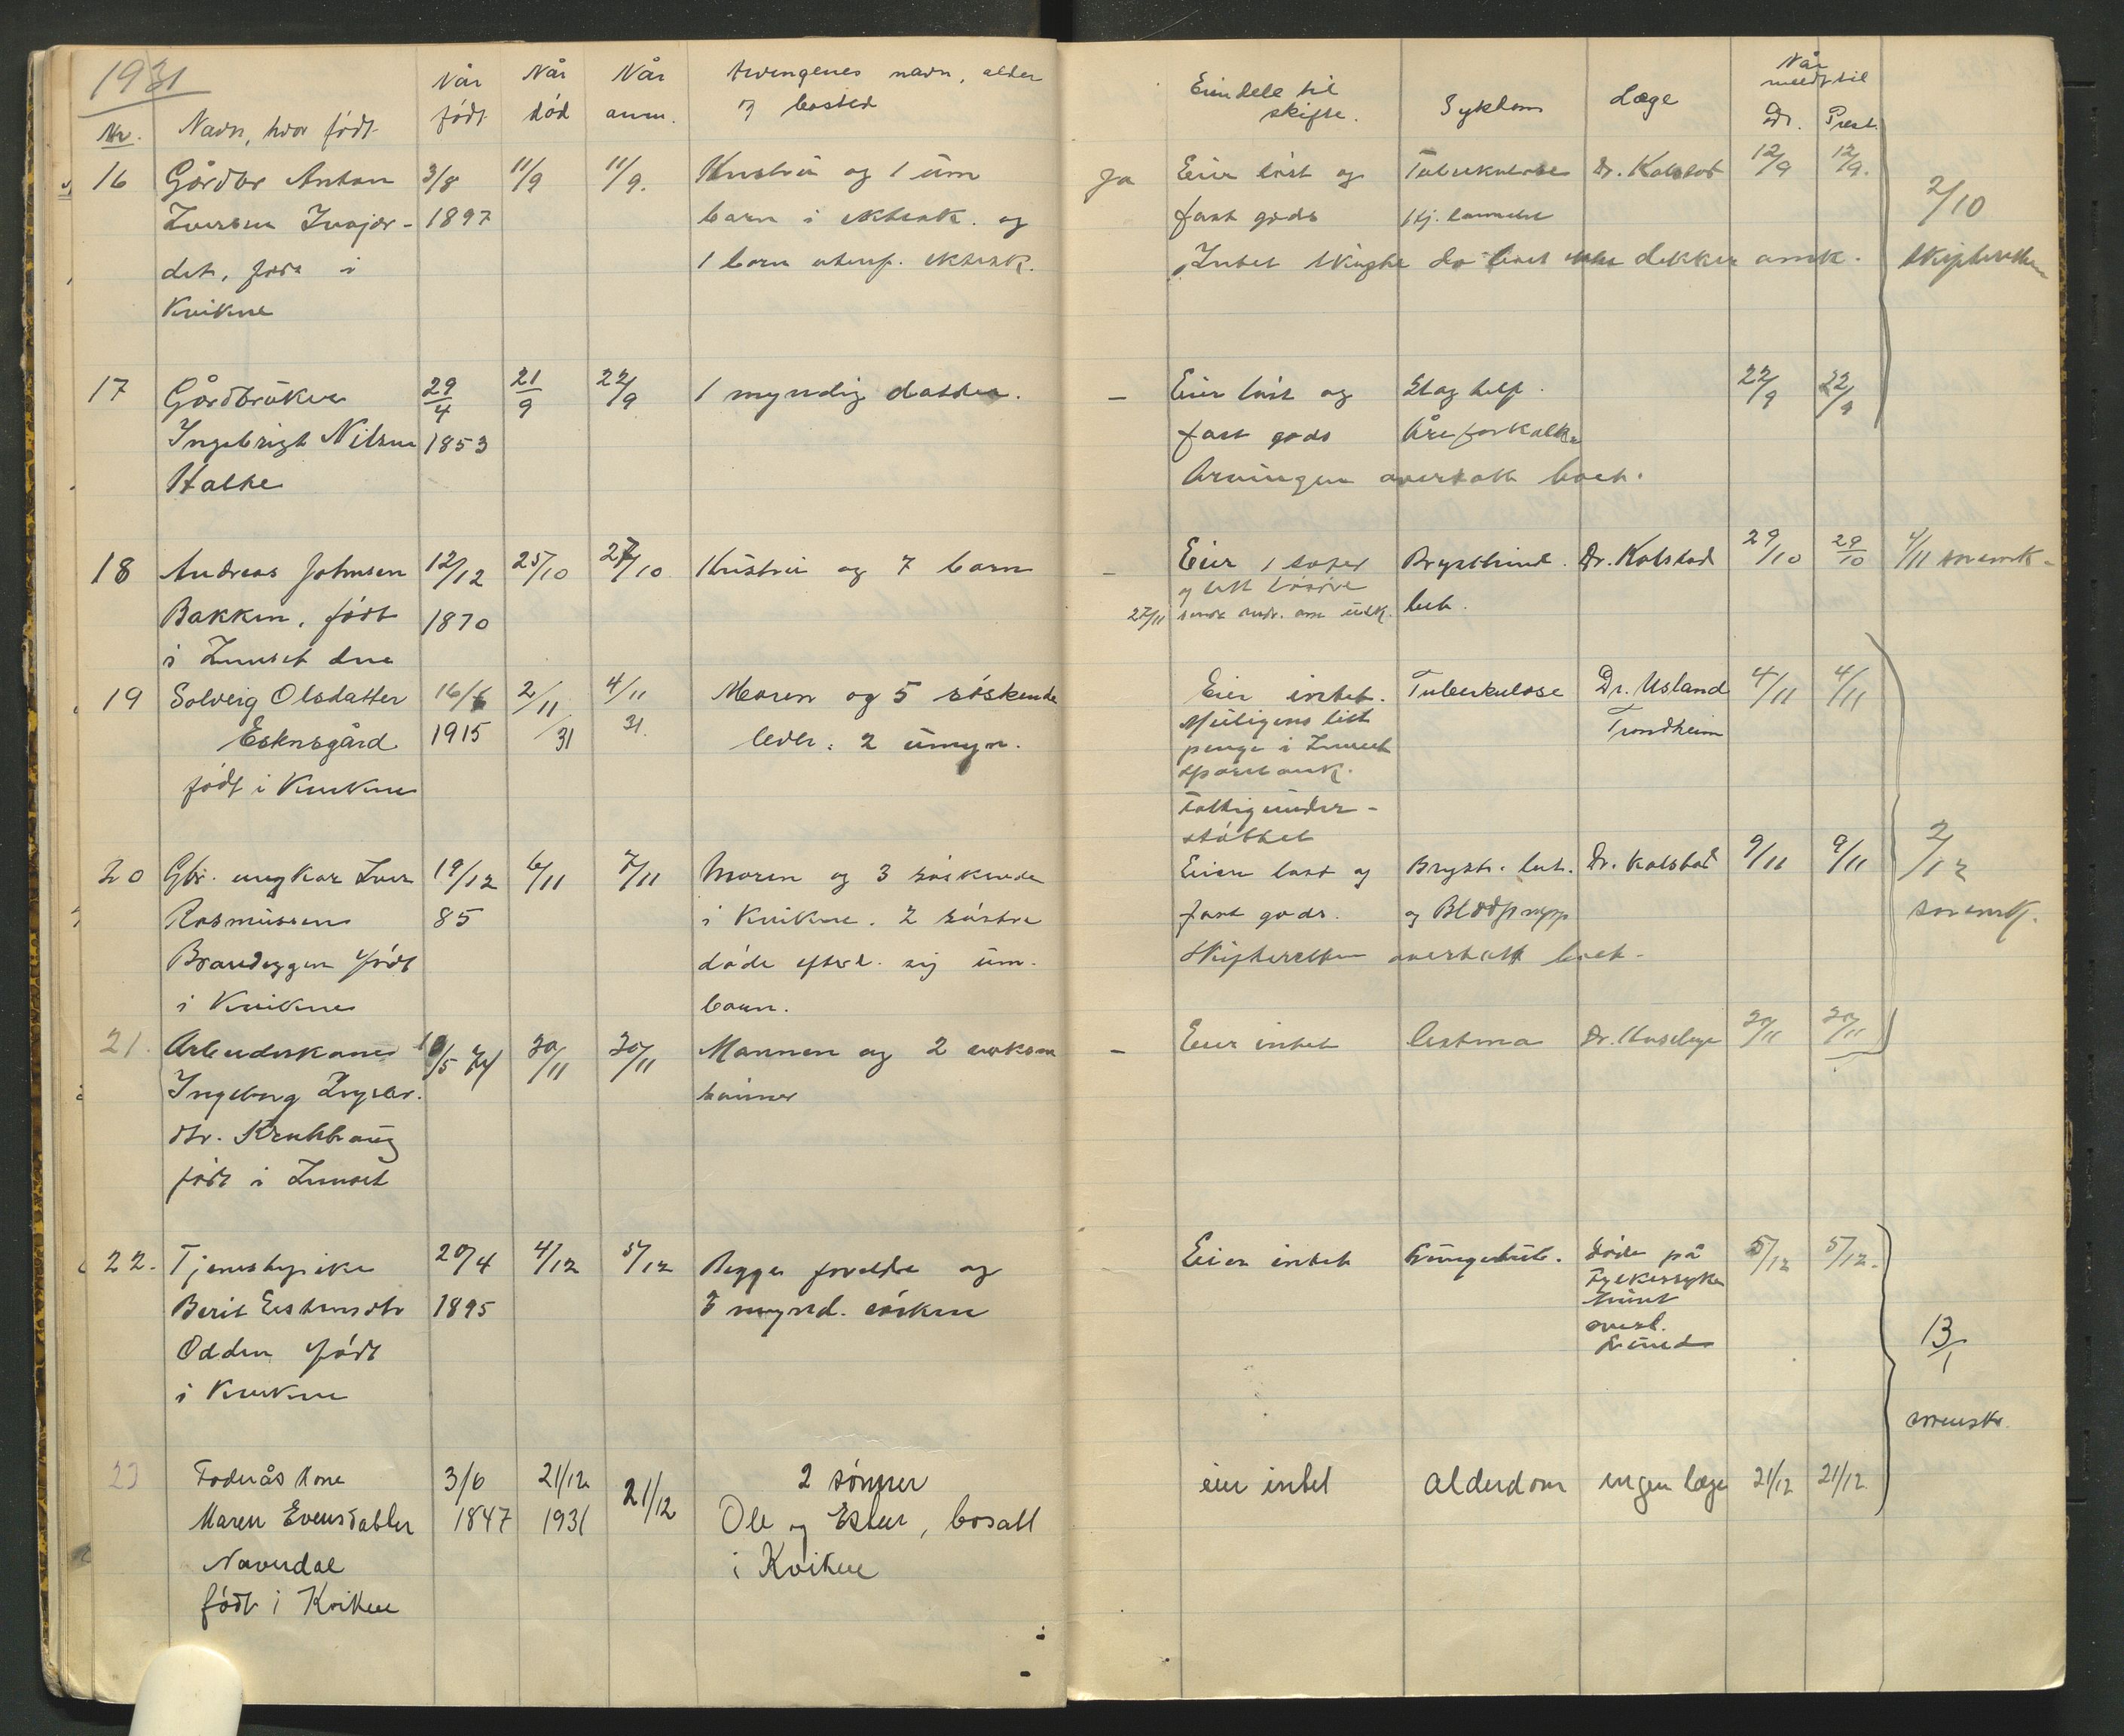 1931
Nr. Navn, hvor født Når født Når død Når anm. Arvingenes navn, alder og bosted Eiendele til skifte. Sykdom Læge Når meldt til Dr. Prest.
16 Gårdbr Anton 3/8 11/9 11/9. Hustru og 1 um Ja Eier løst og Tuberkulose Dr. Kolstad 12/9 12/9.
Iversen 1897 barn i ektesk. og fast gods 2/10
det, født i 1 barn utenf. ektesk. Intet skifte da boet dekker
Kvikne
17 Gårdbruker 29/4 21/9 22/9 1 myndig datter. – Eier løst og Slag 22/9 22/9
Ingebrigt Nilsen 1853 fast gods Åreforkalkn
Arvingen overtatt boet.
18 Andreas Johnsen 12/12 25/10 27/10 Hustru og 7 barn – Eier Brystbind. Dr. Kolstad 29/10 29/10 4/11
Bakken, født 1870 og litt løsøre
i Innset 27/11 bet.
19 Solveig Olsdatter 16/6 2/11 4/11 Moren og 5 søskende Eier intet. Tuberkulose Dr. Usland 4/11 4/11
Eskosgård 1915 31 31. 2 umyn. Muligens litt Trondheim
født i Kvikne penge i Innset
Sparebank.
Fattigunder-
støttet
20 Gbr. ungkar Iver 19/12 6/11 7/11 Moren og 3 søskende Eier løst og Bryst. bet. Dr. Kolstad 9/11 9/11 2/12
Rasmussen 85 i Kvikne. 2 søstre fast gods. og Blodpropp
Brandeggen født døde efterl. sig um. Skifteretten overtatt boet.
i Kvikne barn.
21. Arbeiderkone 30/11 30/11 Mannen og 2 voksne – Eier intet Astma Dr. 30/11 30/11
Ingeborg sønner
dtr.
født i Innset
22. Tjenestepike 20/4 4/12 5/12 Begge foreldre og Eier intet Lungetub. Døde på 5/12 5/12.
Berit Estensdtr 1895 mynd. søsken Fylkessyke
Odden født hus 13/1
i Kvikne
23 Foderås kone 3/6 21/12 21/12 2 sønner eier intet Alderdom ingen læge 21/12 21/12
Maren Evensdatter 1847 1931 Ole og Esten, bosatt
Naverdal i Kvikne
født i Kvikne